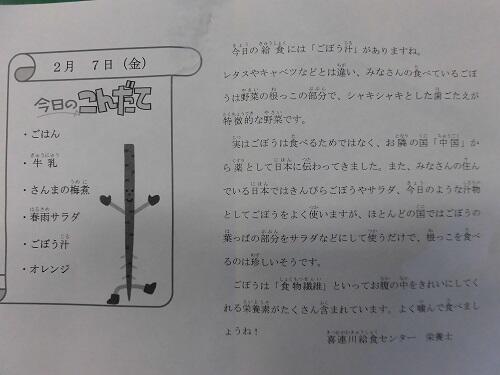 2月 7日(金)
今日のこんだて
・ごはん
・牛乳
・さんまの梅煮
・春雨サラダ
・ごぼう汁
・オレンジ
今日の給食には「ごぼう汁」がありますね。
レタスやキャベツなどとは違い、みなさんの食べているごぼ
うは野菜の根っこの部分で、シャキシャキとした歯ごたえが
特徴的な野菜です。
実はごぼうは食べるためではなく、お隣の国「中国」か
ら薬として日本に伝わってきました。また、みなさんの住ん
でいる日本ではきんぴらごぼうやサラダ、今日のような汁物
としてごぼうをよく使いますが、ほとんどの国ではごぼうの
葉っぱの部分をサラダなどにして使うだけで、根っこを食べ
るのは珍しいそうです。
ごぼうは「食物繊維」といってお腹の中をきれいにしてく
れる栄養素がたくさん含まれています。よく噛んで食べまし
ょうね!
喜連川給食センター 栄養士